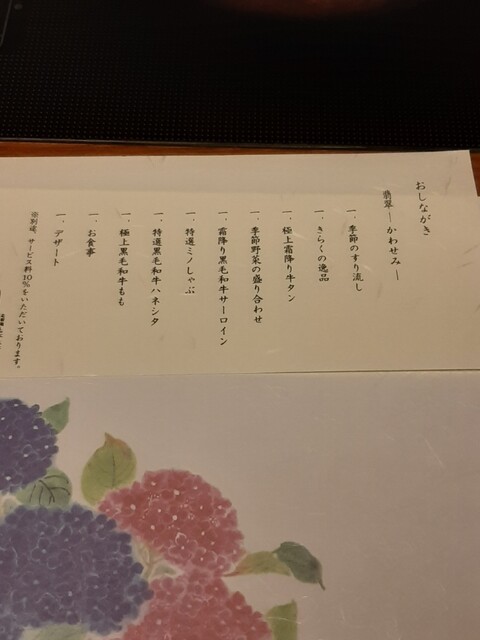 おしながき
翡翠―かわせみ―
一、季節のすり流し
一、きらくの逸品
一、極上霜降り牛タン
一、季節野菜の盛り合わせ
一、霜降り黒毛和牛サーロイン
一、特選ミノしゃぶ
一、特選黒毛和牛ハネシタ
一、極上黒毛和牛もも
一、お食事
一、デザート
※別途、サービス料10%をいただいております。